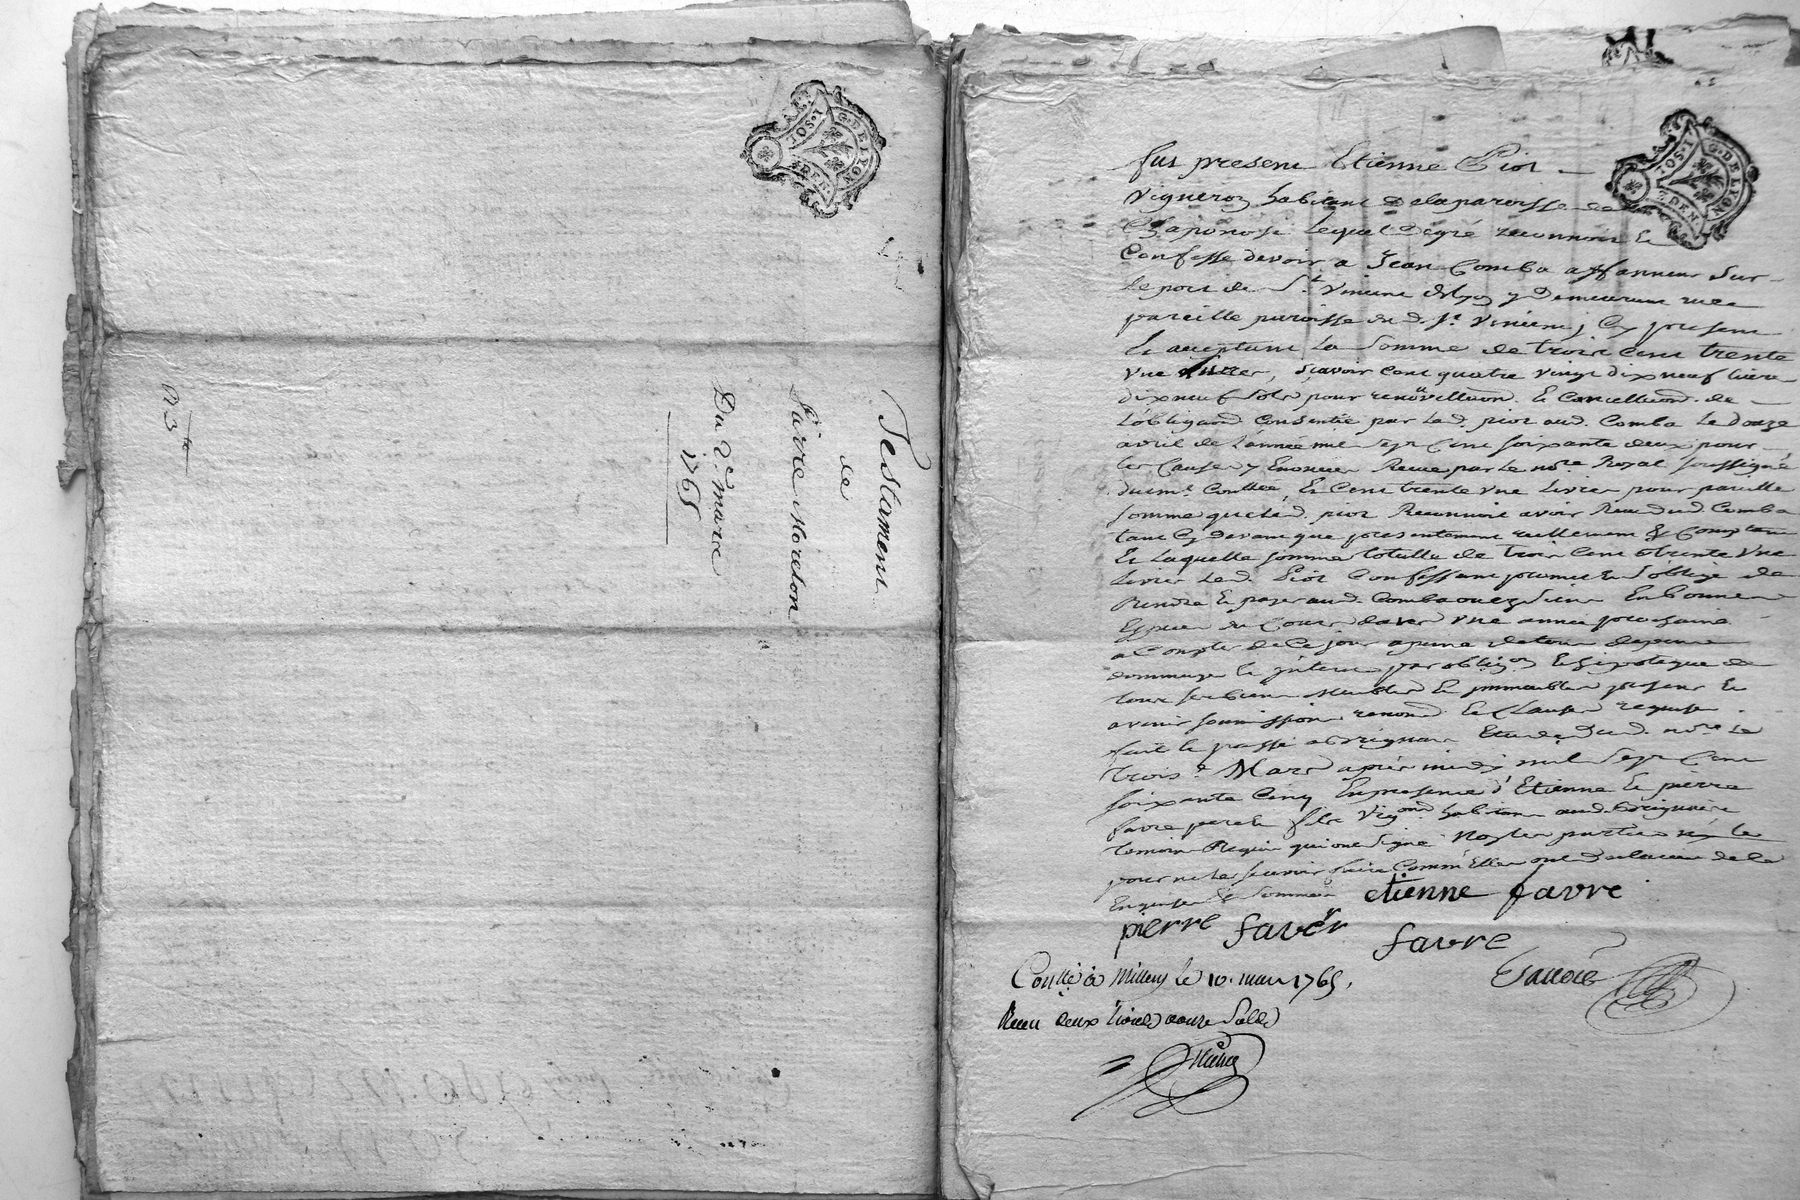 G. DE LYON
1 SOL
4 DEN.
Testament
de
Pierre Moreton
Du 2e mars
1765
G. DE LYON
1 SOL
4 DEN.
fut present Etienne Piot
vigneron habitant de la paroisse de
Chaponost lequel de gré reconnoit et
Confesse devoir a Jean Comba affanneur sur
le port de St Vincent de Lyon y demeurant rue et
pareille paroisse du d. St Vincent, Cy present
Et acceptant La Somme de trois cent trente
une livres, sçavoir cent quatre vingt dix neuf livres
dix neuf sols pour et Cancellation de
L'obligaon Consentie par Led. piot aud. Comba Le douze
avril de L'année mil sept Cent soixante deux pour
Les Causes y Enoncées Receue par Le nore Royal soussigné
Et Cent trente une Livres pour pareille
somme que Led. piot Reconnoit avoir Receu dud. Comba
tant Cy devant que presentement reellement Et Comptant
Et Laquelle somme totalle de trois Cent trente une
Livres Led. Piot Confessant promet Et s'oblige de
Rendre Et payer aud. Comba ou es siens En bonnes
Especes du Cours dans une année prochaine
a Compter de Ce jour a peine de tous depens
dommages Et interets par obligon Et hipoteque de
tous ses biens Meubles Et immeubles presents Et
avenir soumissions renond. Et Clauses requises
fait Et passé a Brignais Etude dud. nore Le
trois e Mars après midy mil Sept Cent
soixante Cinq En presence d'Etienne Et pierre
favre pere Et fils vignons habitans aud. Brignais
temoins Requis qui ont signé Non les parties
pour ne le sçavoir faire Comme Elles ont declaré de ce
Enquises Et Sommées etienne favre
pierre faver favre
Coullé à Millery le 10. mars 1765.
Receu deux livres douze Sols